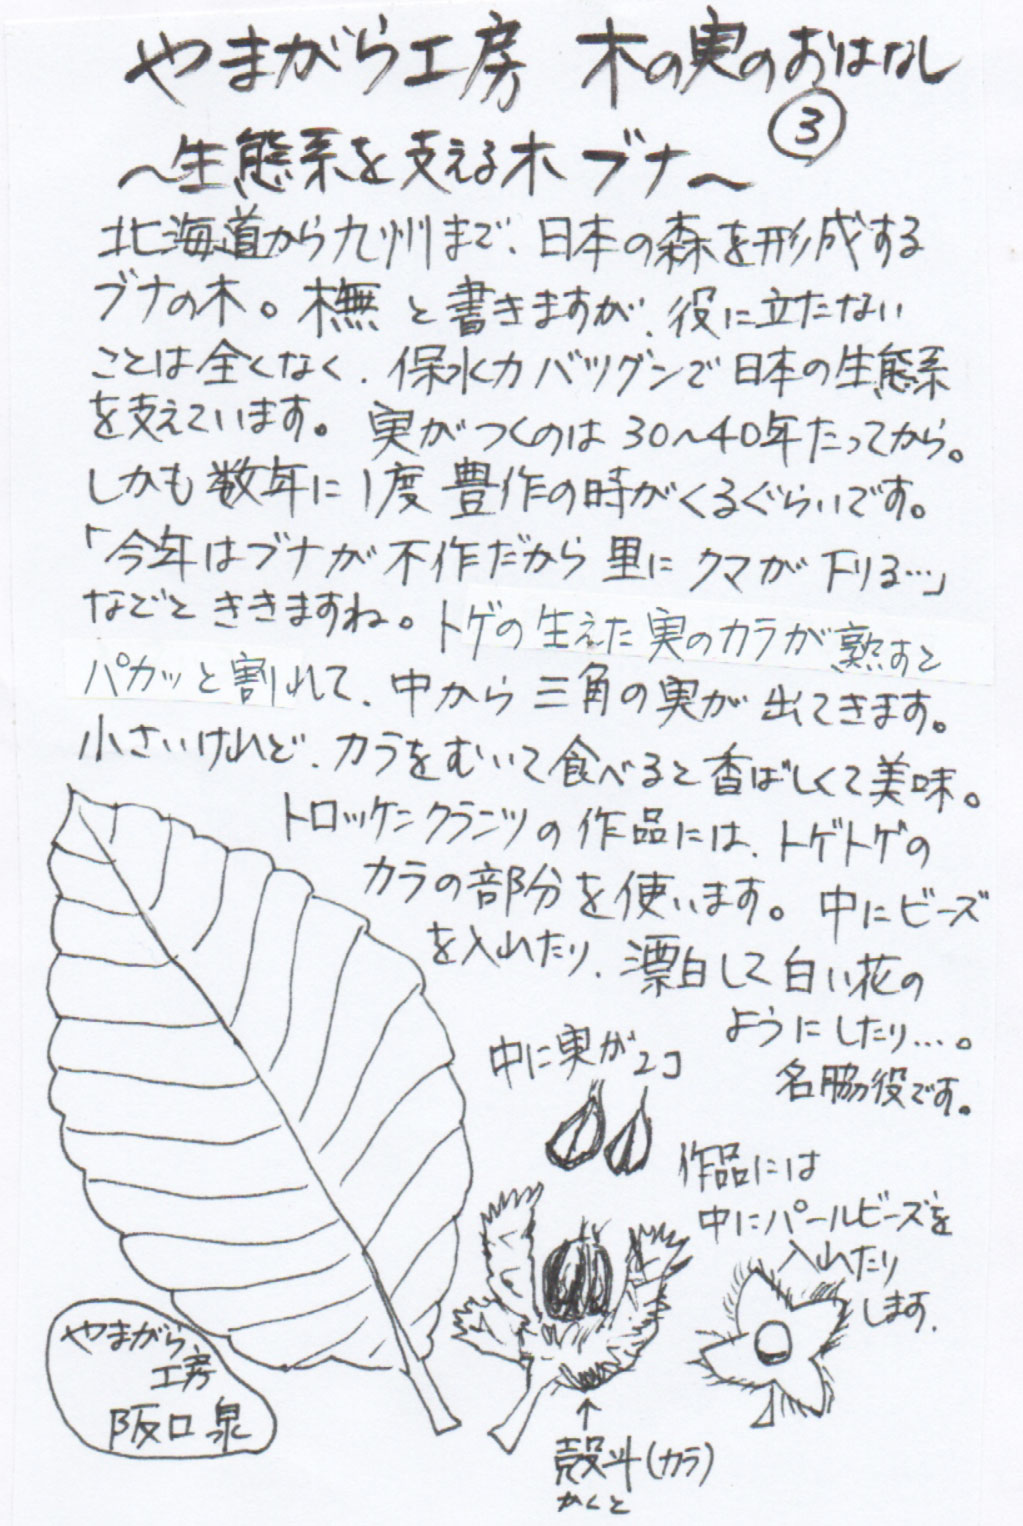 やまがら工房 木の実のおはなし
③
～生態系を支える木 ブナ～
北海道から九州まで、日本の森を形成する
ブナの木。橅と書きますが、役に立たない
ことは全くなく、保水力バツグンで日本の生態系
を支えています。実がつくのは30～40年たってから。
しかも数年に1度豊作の時がくるぐらいです。
「今年はブナが不作だから里にクマが下りる…」
などとききますね。トゲの生えた実のカラが熟すと
パカッと割れて、中から三角の実が出てきます。
小さいけれど、カラをむいて食べると香ばしくて美味。
トロッケンクランツの作品には、トゲトゲの
カラの部分を使います。中にビーズ
を入れたり、漂白して白い花の
ようにしたり…。
名脇役です。
中に実が2コ
作品には
中にパールビーズを
入れたり
します。
やまがら
工房
阪口泉
↑
殻斗(カラ)
かくと